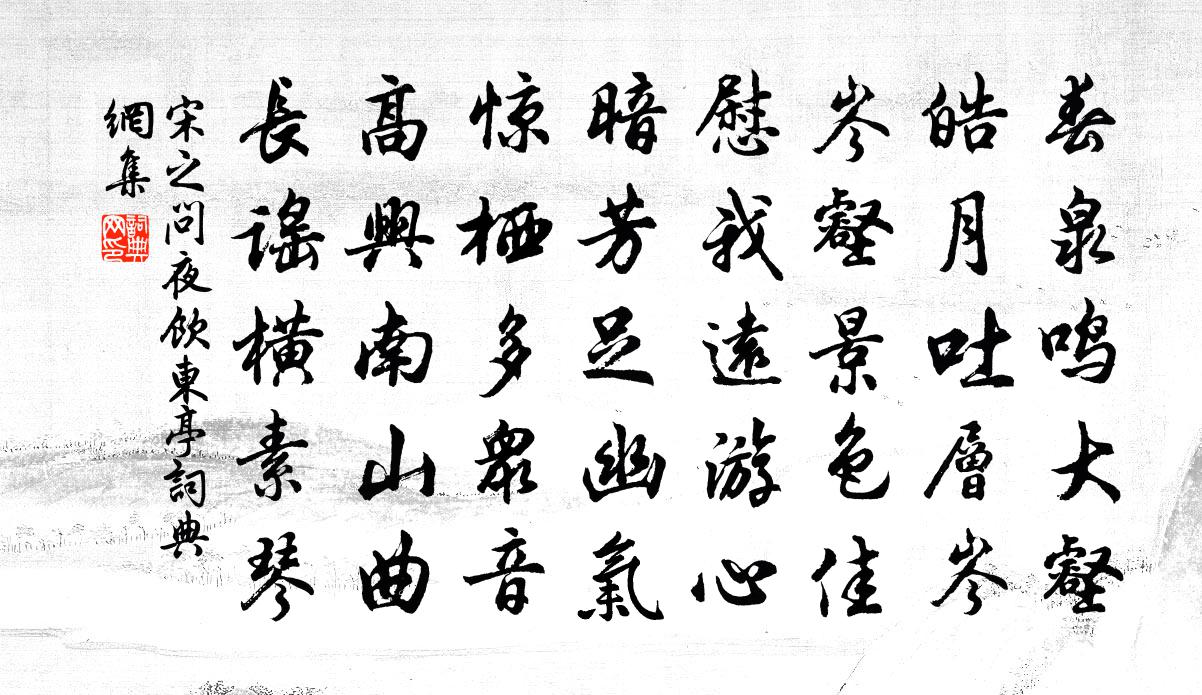 春泉鳴大壑
皓月吐層岑
岑壑景色佳
慰我遠游心
暗芳足幽氣
惊栖多衆音
高興南山曲
長謠橫素琴
宋之问夜飲東亭詞典
網集
詞典
网印